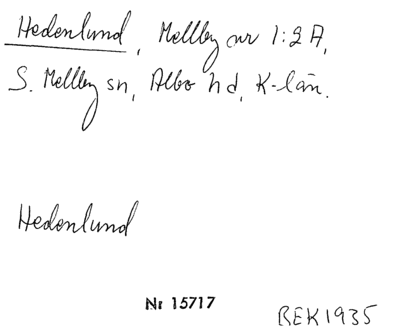 Hedenlund, Mellby nr 1:2A,
S. Mellby sn, Albo hd, K-län.
Hedenlund
Nr 15717
REK 1935